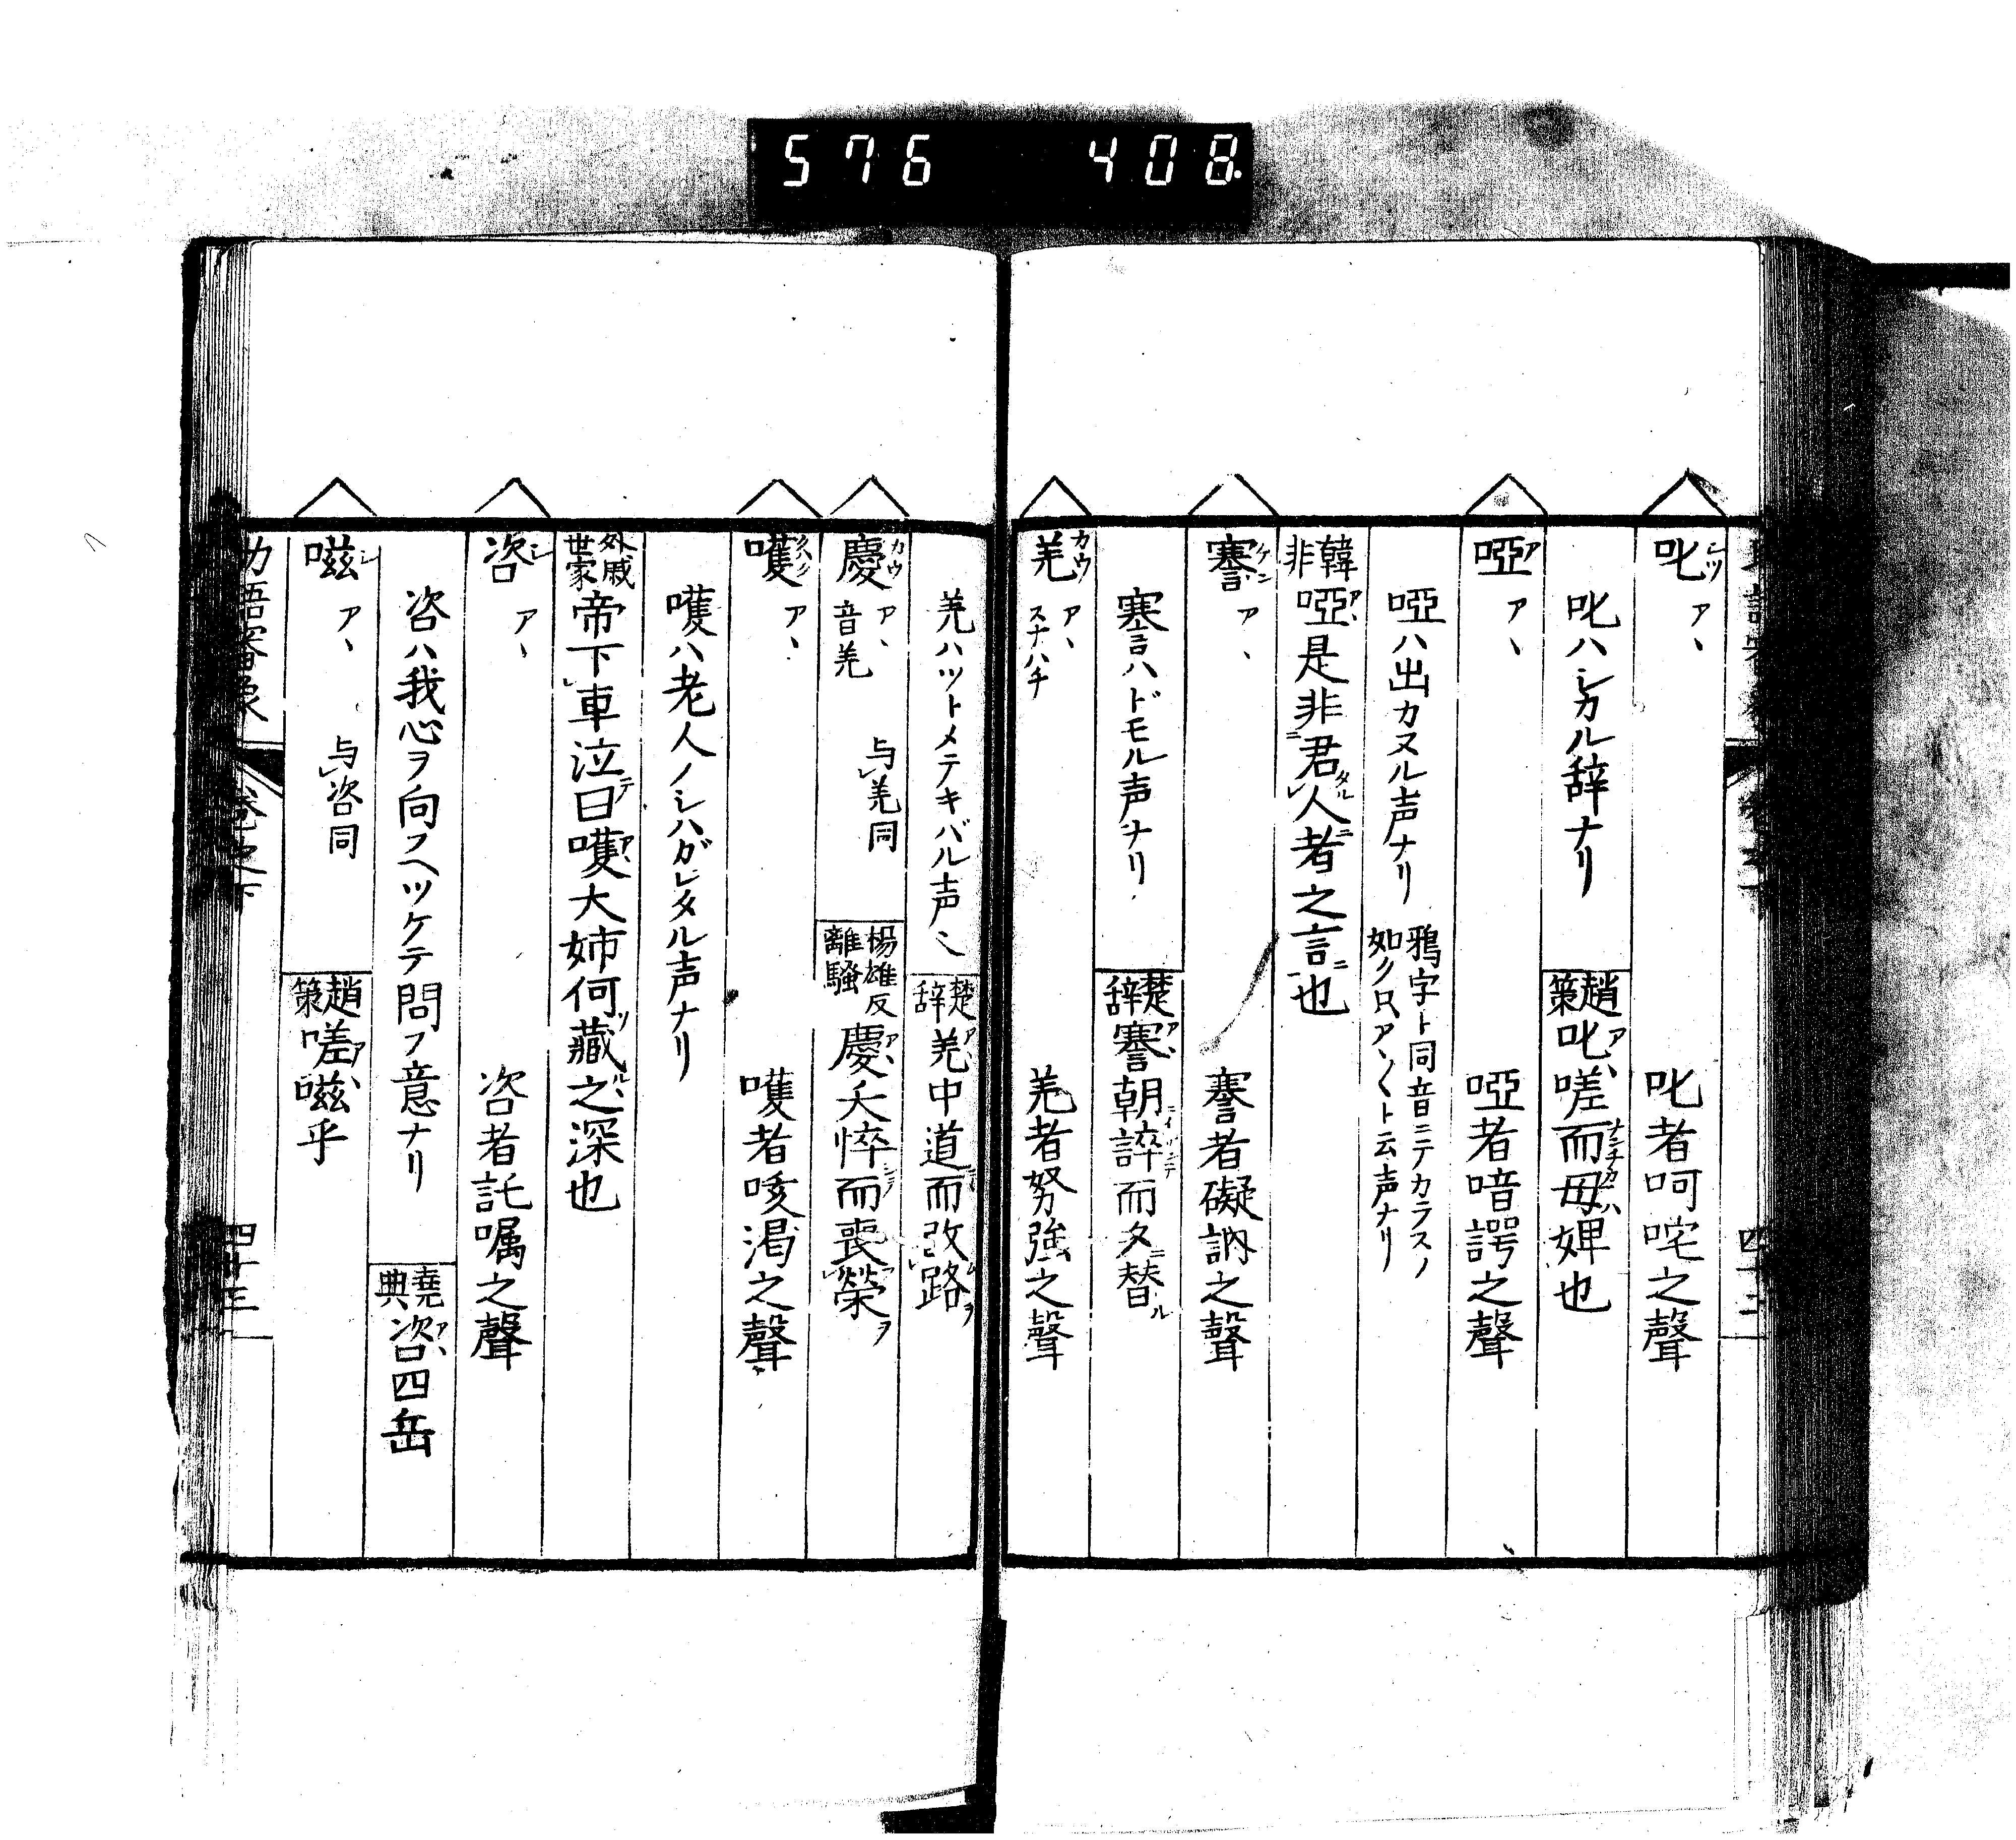 576 408
叱 シツ アヽ 叱者呵咤之聲
叱ハシカル辞ナリ 趙策 叱嗟而母婢也
啞 ア アヽ 啞者喑諤之聲
啞ハ出カヌル声ナリ 鴉字ト同音ニテカラスノ如ク只アヽ〱ト云声ナリ
韓非 啞是非君人者之言也
謇 ケン アヽ 謇者礙訥之聲
謇ハドモル声ナリ 楚辞 謇朝誶而夕替
羌 カウ アヽ スナハチ 羌者努強之聲
羌ハツトメテキバル声 楚辞 羌中道而改路
慶 カウ アヽ 音羌 与羌同 楊雄反離騒 慶夭悴而喪榮
嚄 アヽ 嚄者㖡渇之聲
嚄ハ老人ノシハガレタル声ナリ
外戚世家 帝下車泣曰嚄大姉何藏之深也
咨 シ アヽ 咨者託嘱之聲
咨ハ我心ヲ向フヘツケテ問フ意ナリ 堯典 咨四岳
嗞 シ アヽ 与咨同 趙策 嗟嗞乎
助語審象 巻之下 四十三